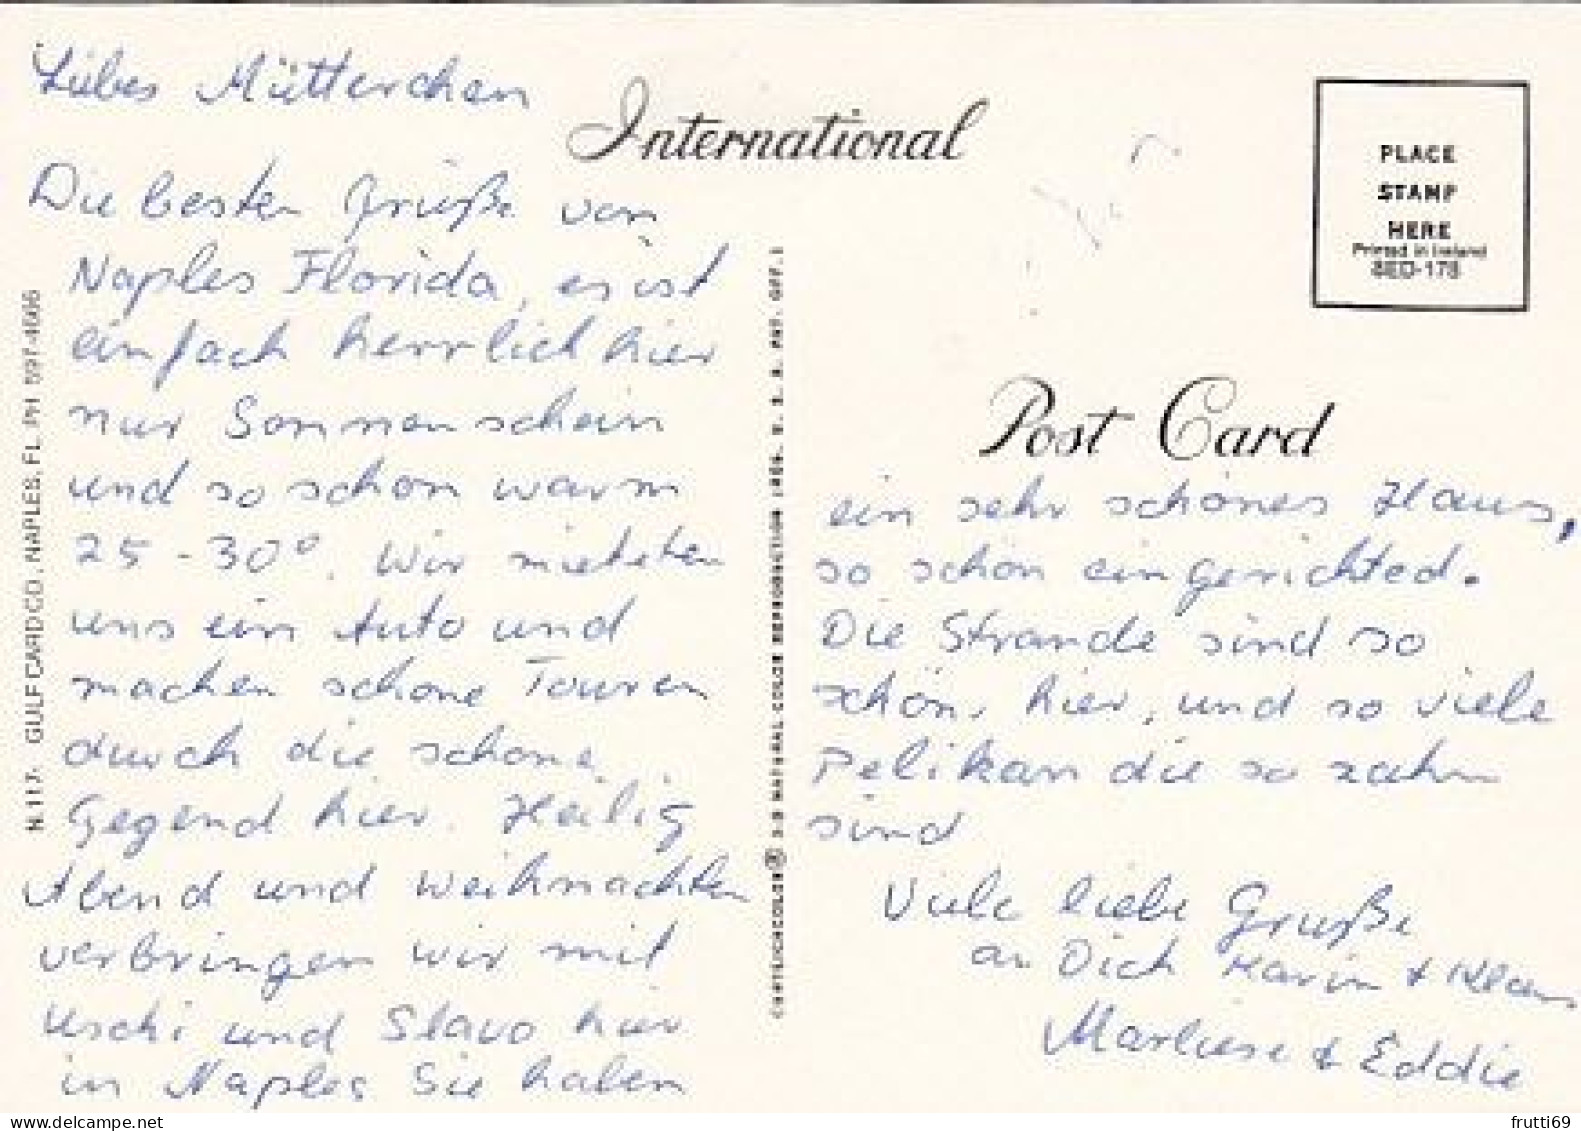 Liebes Mütterchen
Die besten Grüße von
Naples Florida, es ist
einfach herrlich hier
nur Sonnenschein
und so schon warm
25 - 30°. Wir mieteten
uns ein Auto und
machen schone Touren
durch die schone
Gegend hier. Heilig
Abend und weihnachten
verbringen wir mit
Uschi und Slavo hier
in Naples Sie haben
N.117. GULF CARD CO., NAPLES, FL. PH 597-4666
CURTEICHCOLOR® 3-D NATURAL COLOR REPRODUCTION (REG. U.S.A. PAT. OFF.)
International
PLACE
STAMP
HERE
Printed in Ireland
SED-178
Post Card
ein sehr schönes Haus,
so schön eingerichted.
Die Strande sind so
schön, hier, und so viele
Pelikan die so zahm
sind
Viele liebe Grüße
an Dich Karin + Klaus
Marliese & Eddie
frutti69